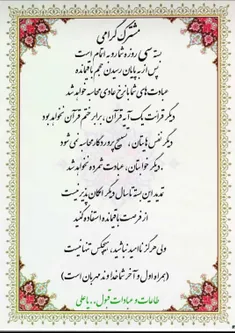 مشترک گرامی
بسته سی روزه شما رو به اتمام است
پس از به پایان رسیدن حجم باقیمانده
عبادت های شما با نرخ عادی محاسبه خواهد شد
دیگر قرائت یک آیه قرآن، برابر ختم قرآن نخواهد بود
دیگر نفس هایتان، تسبیح پروردگار محاسبه نمی شود
، دیگر خوابتان، عبادت شمرده نخواهد شد
تمدید این بسته تا سال دیگر امکان پذیر نیست
از فرصت باقیمانده استفاده کنید
ولی هرگز ناامید نباشید، هیچکس تنها نیست
(همراه اول و آخر شما خداوند مهربان است)
طاعات و عبادات قبول...یا علی